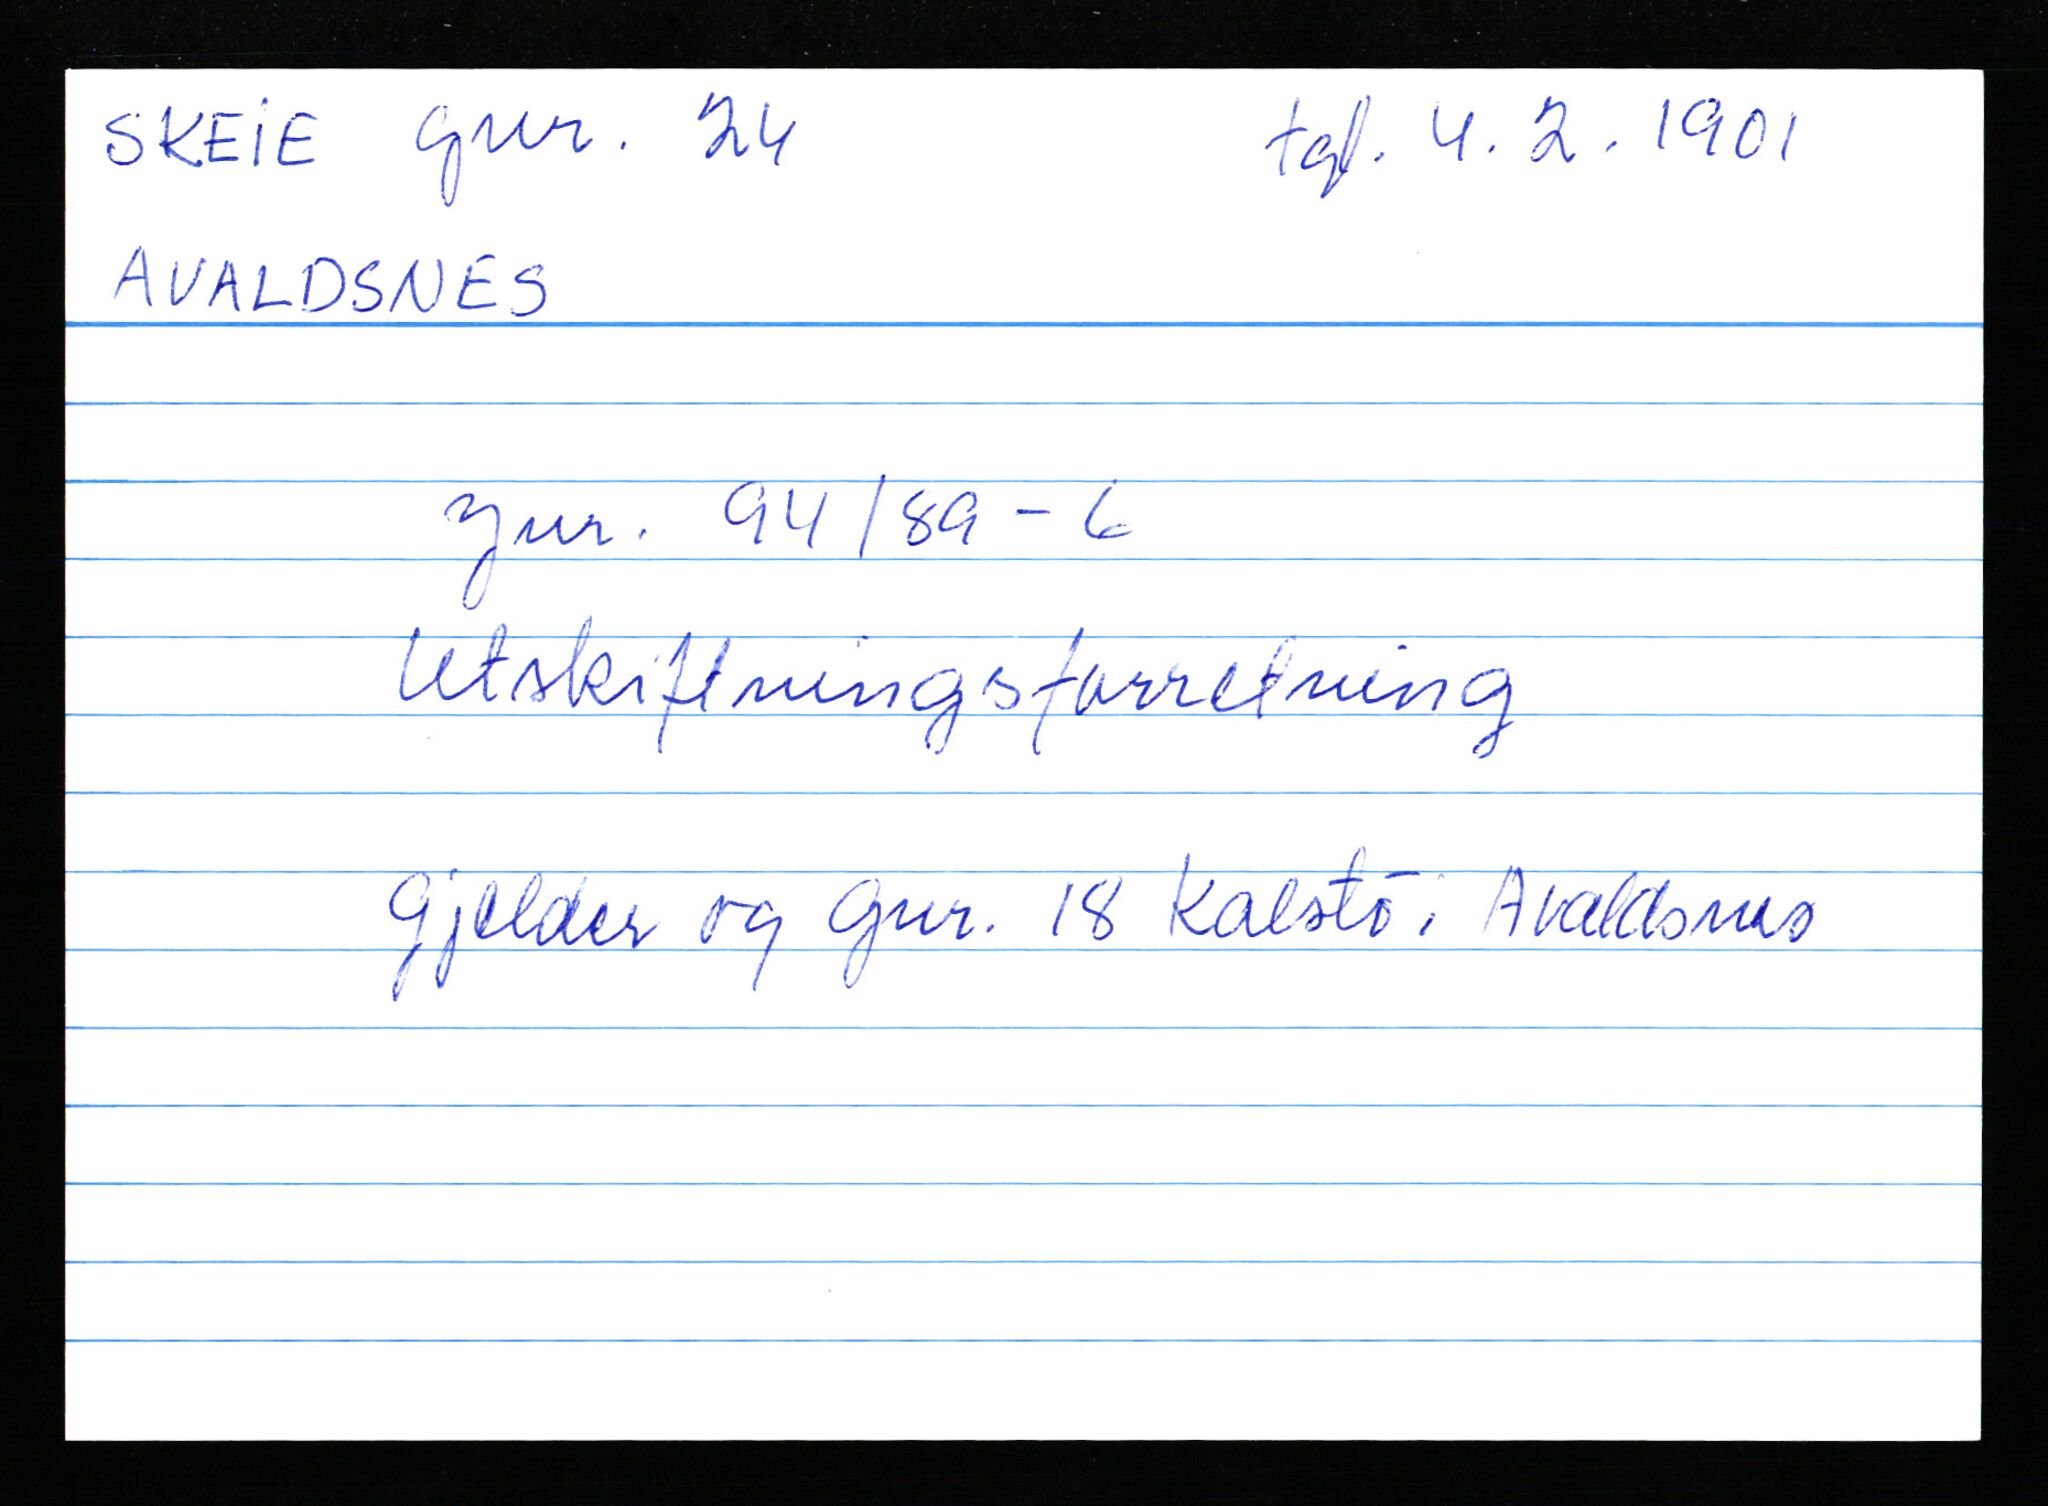 SKEIE gnr. 24 tgl. 4.2.1901
AVALDSNES
jnr. 94/89-6
Utskiftningsforretning
Gjelder og gnr. 18 Kalstō i Avaldsnes